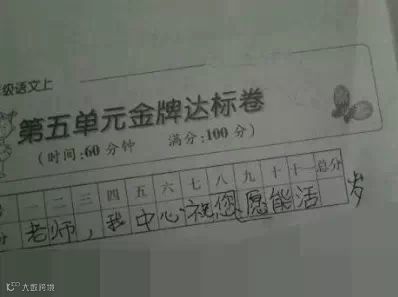 级语文上
第五单元金牌达标卷
(时间:60分钟 满分:100分)
一 二 三 四 五 六 七 八 九 十 十一 总分
分 老师，我中心祝您愿能活 岁
大数跨境